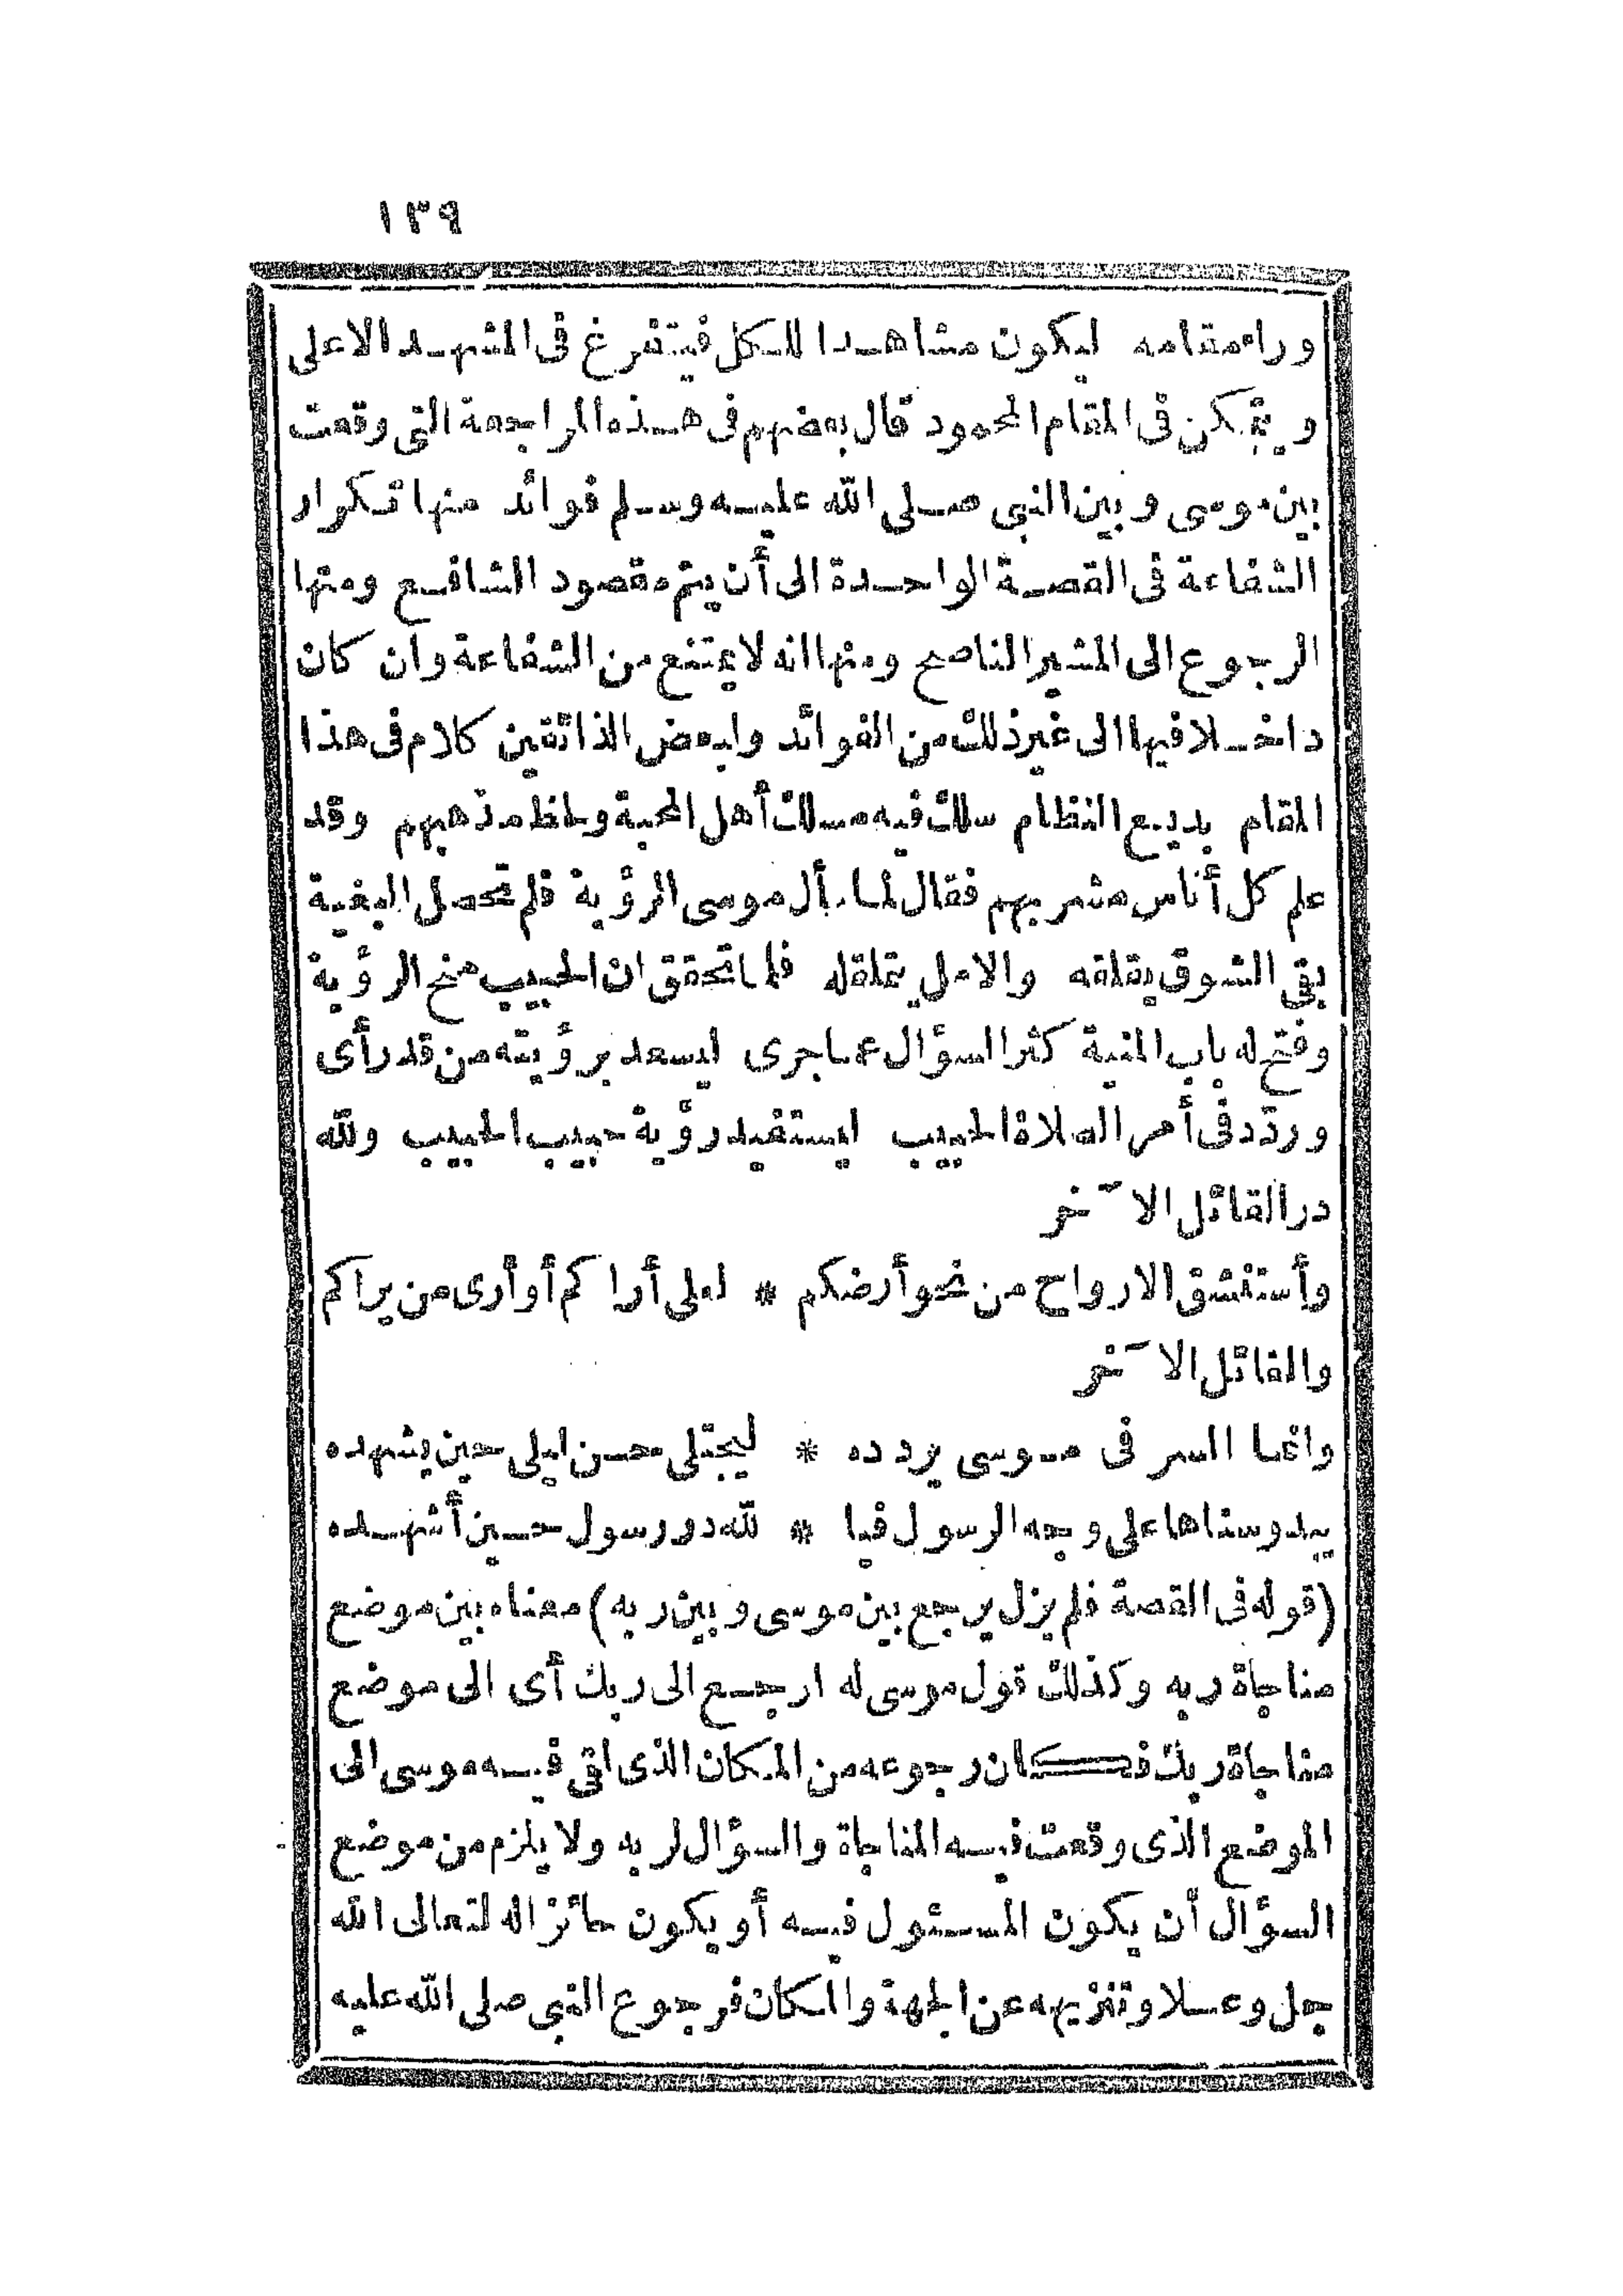 ١٣٩
وراء مقامه ليكون مشاهدا للكل فيتفرغ فى المشهد الاعلى
ويتمكن فى المقام المحمود قال بعضهم فى هذه المراجعة التى وقعت
بين موسى وبين النبى صلى الله عليه وسلم فوائد منها تكرار
الشفاعة فى القصة الواحدة الى أن يتم مقصود الشافع ومنها
الرجوع الى المشير الناصح ومنها انه لا يمتنع من الشفاعة وان كان
داخلا فيها الى غير ذلك من الفوائد ولبعض الذائقين كلام فى هذا
المقام بديع النظام سلك فيه مسلك أهل المحبة ولحظ مذهبهم وقد
علم كل أناس مشربهم فقال لما سأل موسى الرؤية فلم تحصل البغية
بقى الشوق يقلقه والامل يتملقله فلما تحقق ان الحبيب منح الرؤية
وفتح له باب المنية كثر السؤال عما جرى ليسعد برؤيته من قد رأى
وردّد فى أمر الصلاة الحبيب ليستفيد رؤية حبيب الحبيب ولله
در القائل الآخر
وأستنشق الارواح من نحو أرضكم * لعلى أراكم أو أرى من يراكم
والقائل الآخر
وانما السر فى موسى يردده * ليجتلى حسن ليلى حين يشهده
يبدو سناها على وجه الرسول فيا * لله در رسول حين أشهده
(قوله فى القصة فلم يزل يرجع بين موسى وبين ربه) معناه بين موضع
مناجاة ربه وكذلك قول موسى له ارجع الى ربك أى الى موضع
مناجاة ربك فكان رجوعه من المكان الذى لقى فيه موسى الى
الموضع الذى وقعت فيه المناجاة والسؤال لربه ولا يلزم من موضع
السؤال أن يكون المسئول فيه أو يكون حائزا له لتعالى الله
جل وعلا وتنزيهه عن الجهة والمكان فرجوع النبى صلى الله عليه